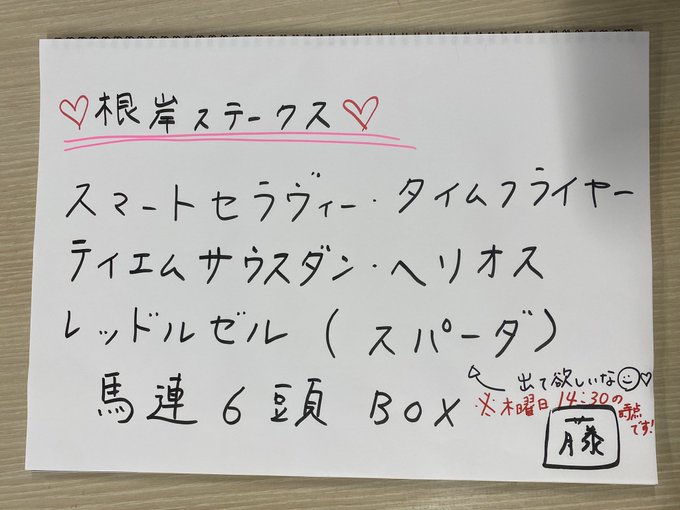 ♡根岸ステークス♡
スマートセラヴィー・タイムフライヤー
ティエムサウスダン・ヘリオス
レッドルゼル(スパーダ)
馬連6頭BOX
↖出て欲しいな☺♡
※木曜日14:30の時点です!
藤